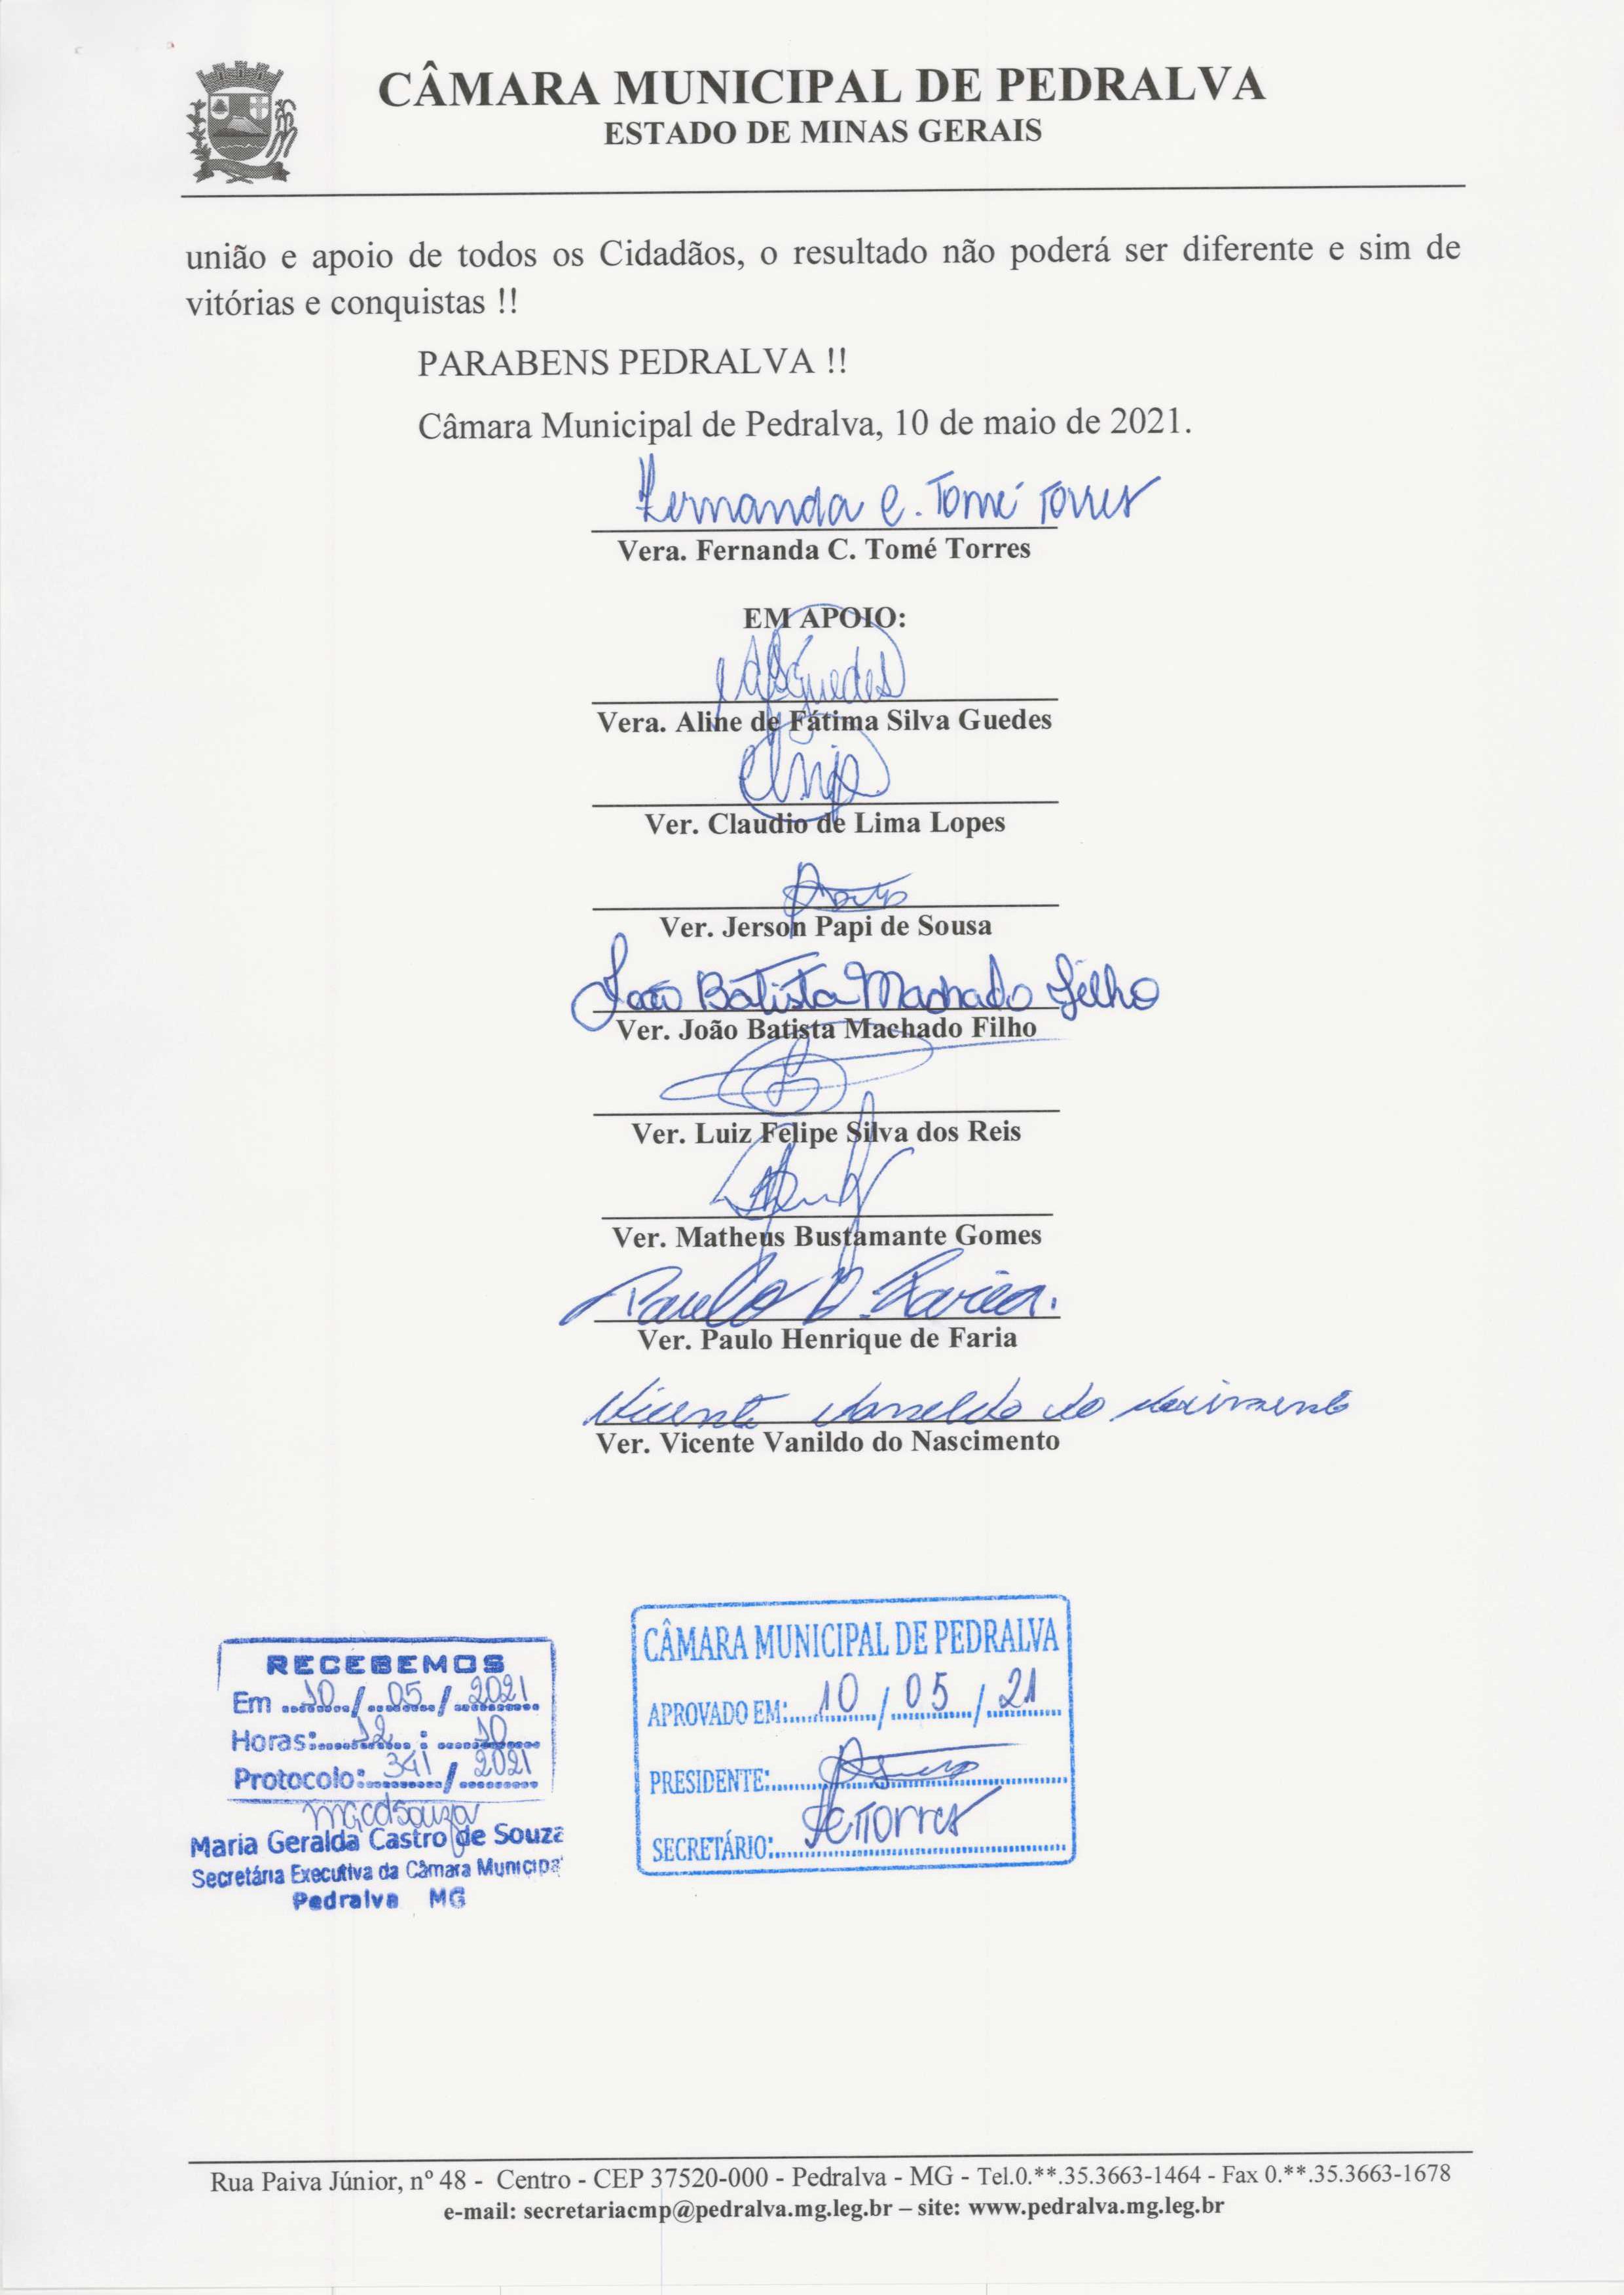 CÂMARA MUNICIPAL DE PEDRALVA
ESTADO DE MINAS GERAIS
união e apoio de todos os Cidadãos, o resultado não poderá ser diferente e sim de
vitórias e conquistas !!
PARABENS PEDRALVA !!
Câmara Municipal de Pedralva, 10 de maio de 2021.
Fernanda C. Tomé Torres
Vera. Fernanda C. Tomé Torres
EM APOIO:
Guedes
Vera. Aline de Fátima Silva Guedes
Ver. Claudio de Lima Lopes
Ver. Jerson Papi de Sousa
João Batista Machado Filho
Ver. João Batista Machado Filho
Ver. Luiz Felipe Silva dos Reis
Ver. Matheus Bustamante Gomes
Paulo H. Faria.
Ver. Paulo Henrique de Faria
Vicente Vanildo do Nascimento
Ver. Vicente Vanildo do Nascimento
RECEBEMOS
Em 10/05/2021
Horas: 12:10
Protocolo: 341/2021
mgcdsouza
Maria Geralda Castro de Souza
Secretária Executiva da Câmara Municipa
Pedralva MG
CÂMARA MUNICIPAL DE PEDRALVA
APROVADO EM: 10/05/21
PRESIDENTE:
SECRETÁRIO: FCTorres
Rua Paiva Júnior, nº 48 - Centro - CEP 37520-000 - Pedralva - MG - Tel.0.**.35.3663-1464 - Fax 0.**.35.3663-1678
e-mail: secretariacmp@pedralva.mg.leg.br – site: www.pedralva.mg.leg.br